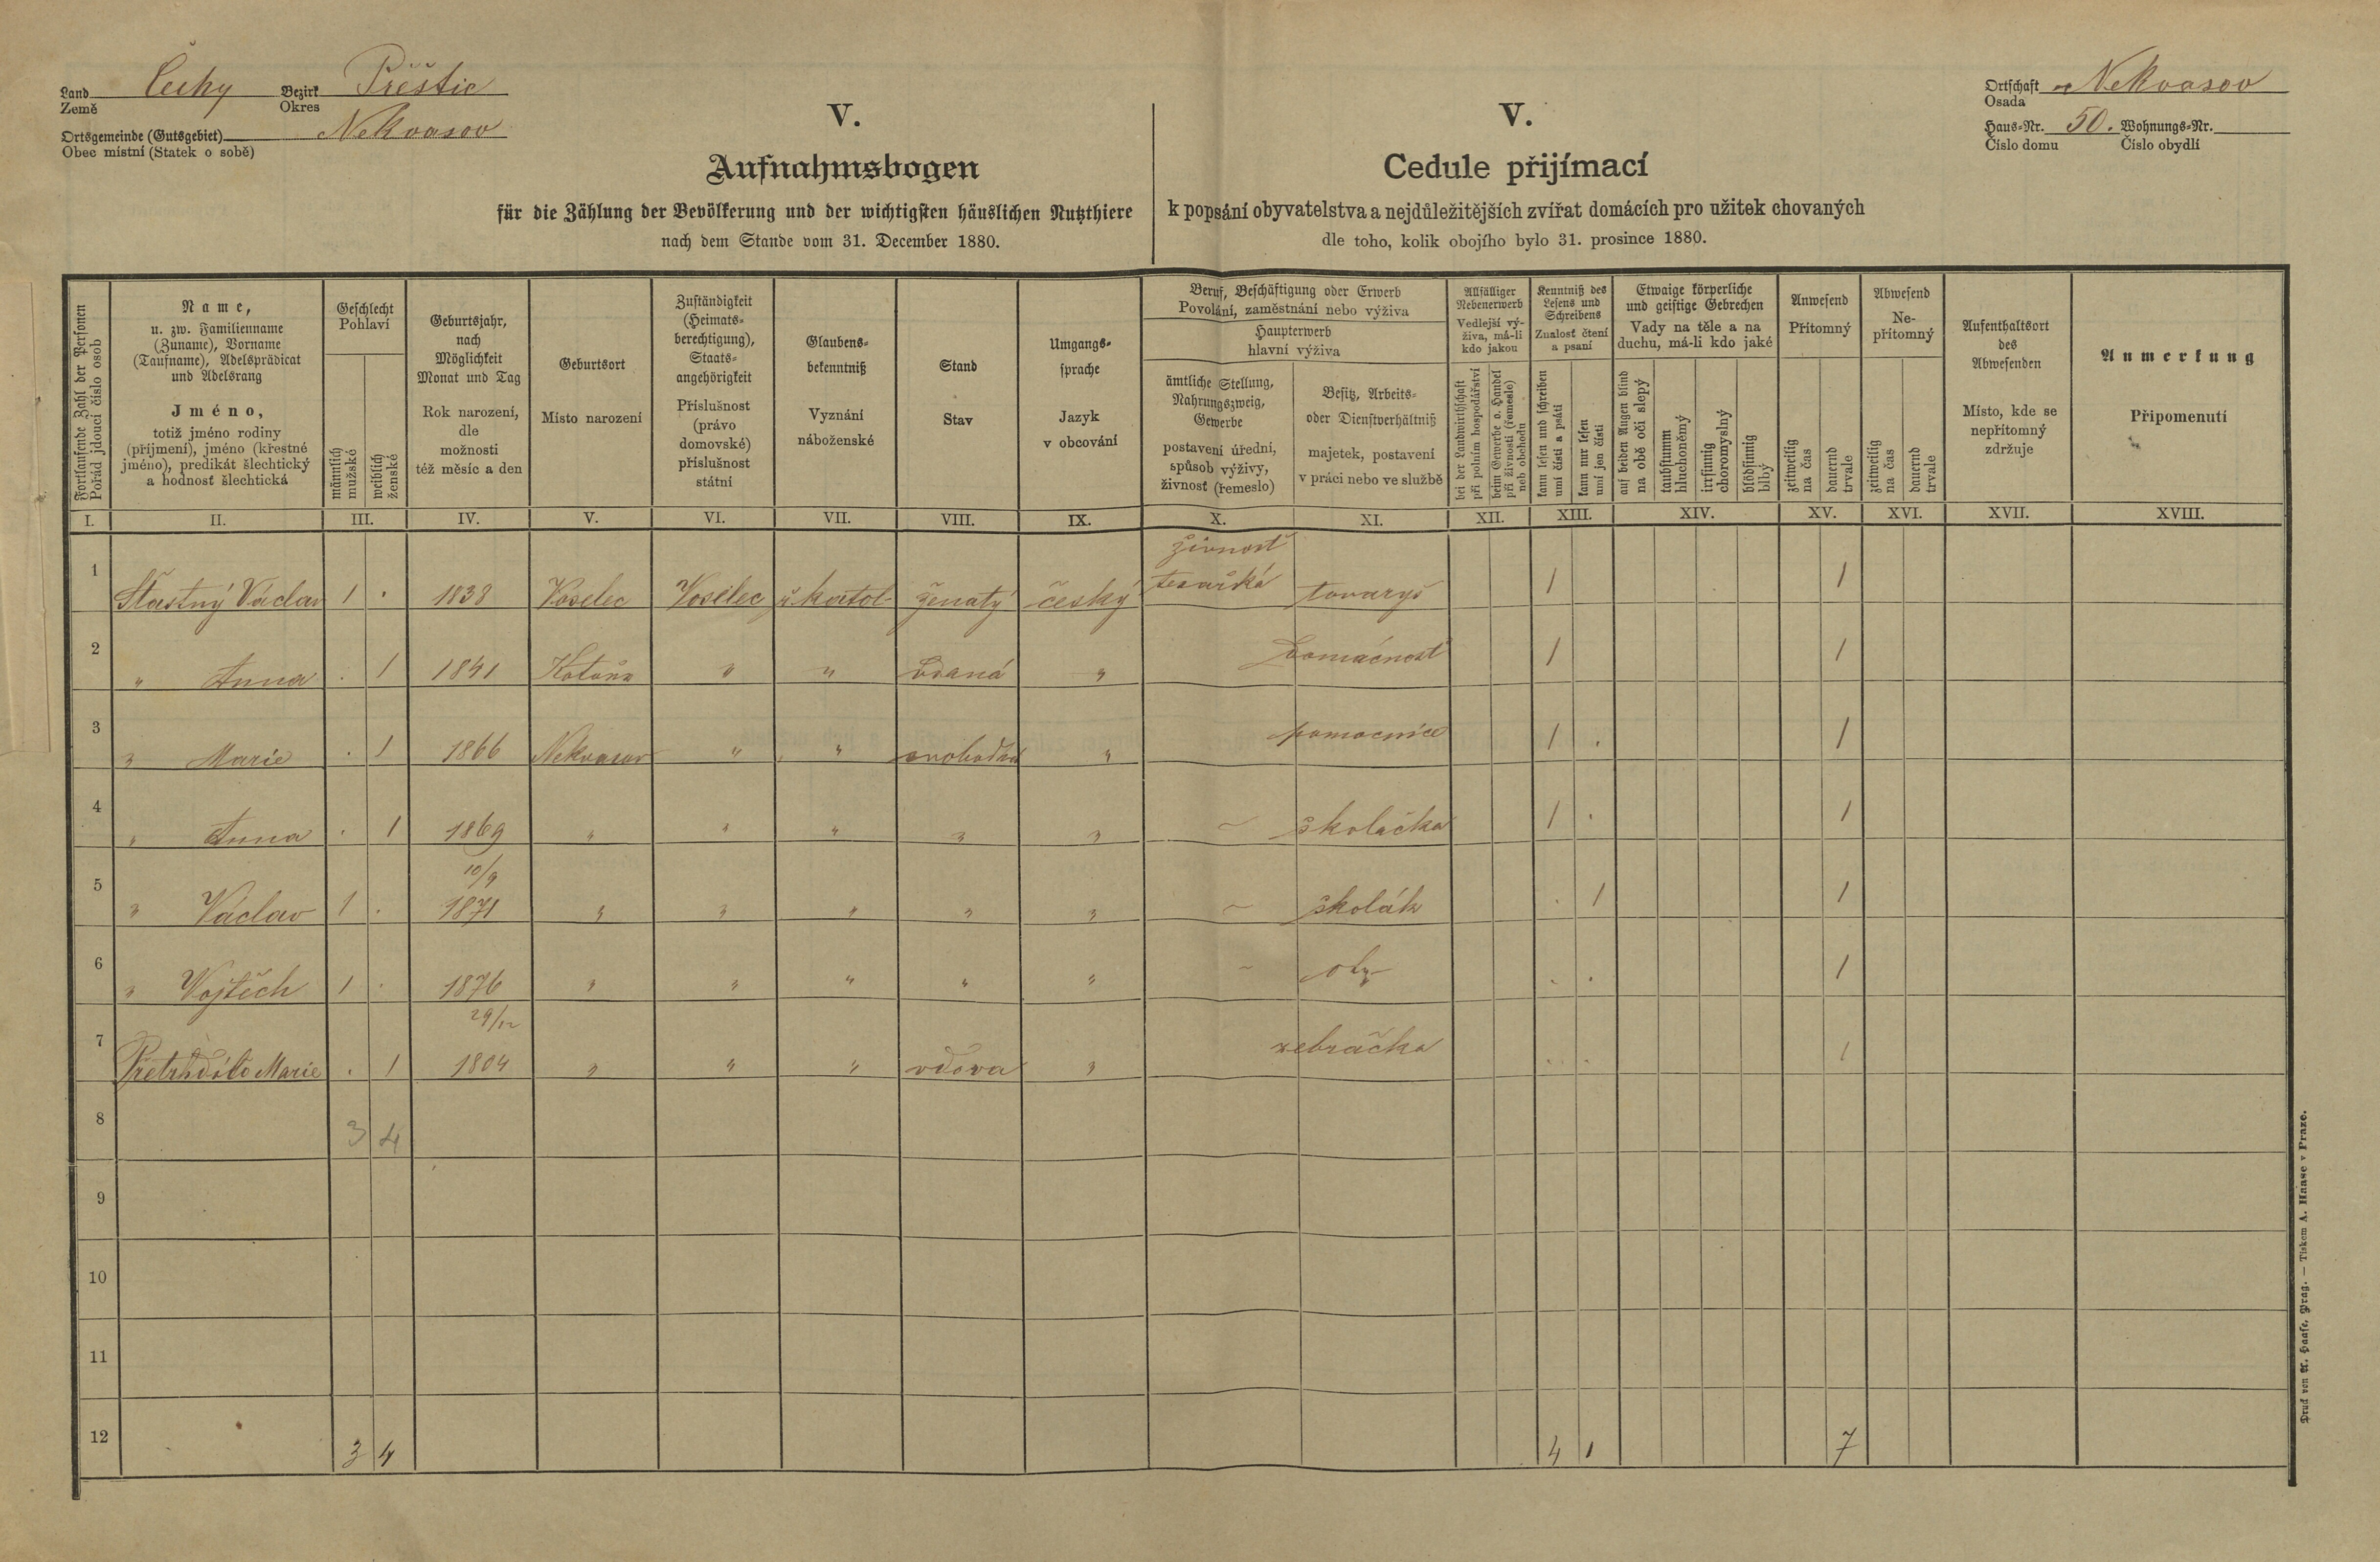 Land Čechy Bezirk Přeštic
Země Okres
Ortsgemeinde (Gutsgebiet) Nekvasov
Obec místní (Statek o sobě)
Ortschaft Nekvasov
Osada
Haus-Nr. 50. Wohnungs-Nr.
Číslo domu Číslo obydlí
V.
Aufnahmsbogen
für die Zählung der Bevölkerung und der wichtigsten häuslichen Nutzthiere
nach dem Stande vom 31. December 1880.
V.
Cedule přijímací
k popsání obyvatelstva a nejdůležitějších zvířat domácích pro užitek chovaných
dle toho, kolik obojího bylo 31. prosince 1880.
Fortlaufende Zahl der Personen
Pořád jdoucí číslo osob
Name,
u. zw. Familienname
(Zuname), Vorname
(Taufname), Adelsprädicat
und Adelsrang
Jméno,
totiž jméno rodiny
(příjmení), jméno (křestné
jméno), predikát šlechtický
a hodnosť šlechtická
Geschlecht
Pohlaví
männlich
mužské
weiblich
ženské
Geburtsjahr,
nach
Möglichkeit
Monat und Tag
Rok narození,
dle
možnosti
též měsíc a den
Geburtsort
Místo narození
Zuständigkeit
(Heimats-
berechtigung),
Staats-
angehörigkeit
Příslušnost
(právo
domovské)
příslušnost
státní
Glaubens-
bekenntniß
Vyznání
náboženské
Stand
Stav
Umgangs-
sprache
Jazyk
v obcování
Beruf, Beschäftigung oder Erwerb
Povolání, zaměstnání nebo výživa
Haupterwerb
hlavní výživa
ämtliche Stellung,
Nahrungszweig,
Gewerbe
postavení úřední,
spůsob výživy,
živnosť (řemeslo)
Besitz, Arbeits-
oder Dienstverhältniß
majetek, postavení
v práci nebo ve službě
Allfälliger
Nebenerwerb
Vedlejší vý-
živa, má-li
kdo jakou
bei der Landwirthschaft
při polním hospodářství
beim Gewerbe o. Handel
při živnosti (řemeslo)
neb obchodu
Kenntniß des
Lesens und
Schreibens
Znalosť čtení
a psaní
kann lesen und schreiben
umí čísti a psáti
kann nur lesen
umí jen čísti
Etwaige körperliche
und geistige Gebrechen
Vady na těle a na
duchu, má-li kdo jaké
auf beiden Augen blind
na obě oči slepý
taubstumm
hluchoněmý
irrsinnig
choromyslný
blödsinnig
blbý
Anwesend
Přítomný
zeitweilig
na čas
dauernd
trvale
Abwesend
Ne-
přítomný
zeitweilig
na čas
dauernd
trvale
Aufenthaltsort
des
Abwesenden
Místo, kde se
nepřítomný
zdržuje
Anmerkung
Připomenutí
I. II. III. IV. V. VI. VII. VIII. IX. X. XI. XII. XIII. XIV. XV. XVI. XVII. XVIII.
živnosť
1 Šťastný Václav 1 . 1838 Voselec Voselec katol ženatý český tesařská tovaryš 1 1
2 " Anna . 1 1841 " " vdaná " Domácnosť 1 1
3 " Marie . 1 1866 Nekvasov " " svobodná " pomocnice 1 . 1
4 " Anna . 1 1869 " " " " " ~ školačka 1 . 1
10/9
5 " Václav 1 . 1871 " " " " " ~ školák . 1 1
6 " Vojtěch 1 . 1876 " " " " " ~ . . 1
29/12
7 Marie . 1 1804 " " " vdova " žebračka . . 1
8 3 4
9
10
11
12 3 4 4 1 7
Druck von A. Haase, Prag. — Tiskem A. Haase v Praze.